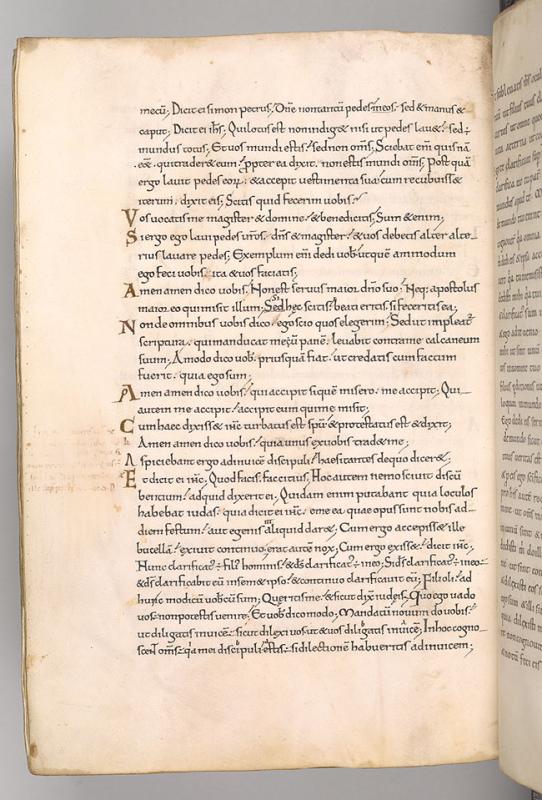 mecū; Dicit ei simon petrus; Dn̄e non tantū pedes meos. sed & manus &
caput; Dicit ei ih̄s; Qui lotus est non indig& nisi ut pedes lau&. sed ÷
mundus totus; Et uos mundi estis. sed non om̄s; Sciebat eni quisnā
e͞e& qui trader& eum. ꝓpter ea dixit. non estis mundi om̄s; Post quā
ergo lauit pedes eoꝝ. & accepit uestimenta sua. cum recubuiss&
iterum. dixit eis; Scitis quid fecerim uobis.
Vos uocatis me magister & domine. & benedicitis; Sum & enim;
Si ergo ego laui pedes ur̄os. dn̄s & magister. & uos debetis alter alte
rius lauare pedes; Exemplum eni dedi uob. ut que ammodum
ego feci uobis. ita & uos faciatis;
Amen amen dico uobis. Non est seruus maior dn̄o suo. Neq; apostolus
maior eo qui misit illum; Si hec scitis. beati eritis si feceritis ea;
Non de omnibus uobis dico. ego scio quos elegerim; Sed ut impleat̄
scriptura. qui manducat mecū panē. leuabit contra me calcaneum
suum; Amodo dico uob. priusquā fiat. ut credatis cum factum
fuerit. quia ego sum;
Amen amen dico uobis. qui accipit siquē misero. me accipit; Qui
autem me accipit. accipit eum qui me misit;
Cum haec dixiss& ih̄c turbatus est spū & protestatus est & dixit;
Amen amen dico uobis. quia unus ex uobis trad& me;
Aspiciebant ergo ad inuicē discipuli. haesitantes de quo dicer&;
Et dicit ei ih̄c; Quod facis. fac citius; Hoc autem nemo sciuit discū
bencium. ad quid dixerit ei; Quidam enim putabant quia loculos
habebat iudas. quia dicit ei ih̄c. eme ea quae opus sunt nobis ad
diem festum. aut egenis aliquid dar&; Cum ergo accepiss& ille
bucellā. exiuit continuo. erat autē nox; Cum ergo exiss&. dicit ih̄c;
Nunc clarificat̄ ÷ fili hominis. & ds̄ clarificat̄ ÷ in eo; Si ds̄ clarificat̄ ÷ in eo
& ds̄ clarificabit eū in sem& ipso. & continuo clarificauit eū; Filioli. ad
huc modicū uobcū sum; Queritis me. & sicut dixi iudeis; Quo ego uado
uos non potestis uenire; Et uob dico modo; Mandatū nouum do uobis.
ut diligatis inuicē. sicut dilexi uos. ut & uos diligatis inuicē; In hoc cogno
scent om̄s. qa mei discipuli estis. si dilectionē habueritis ad inuicem;